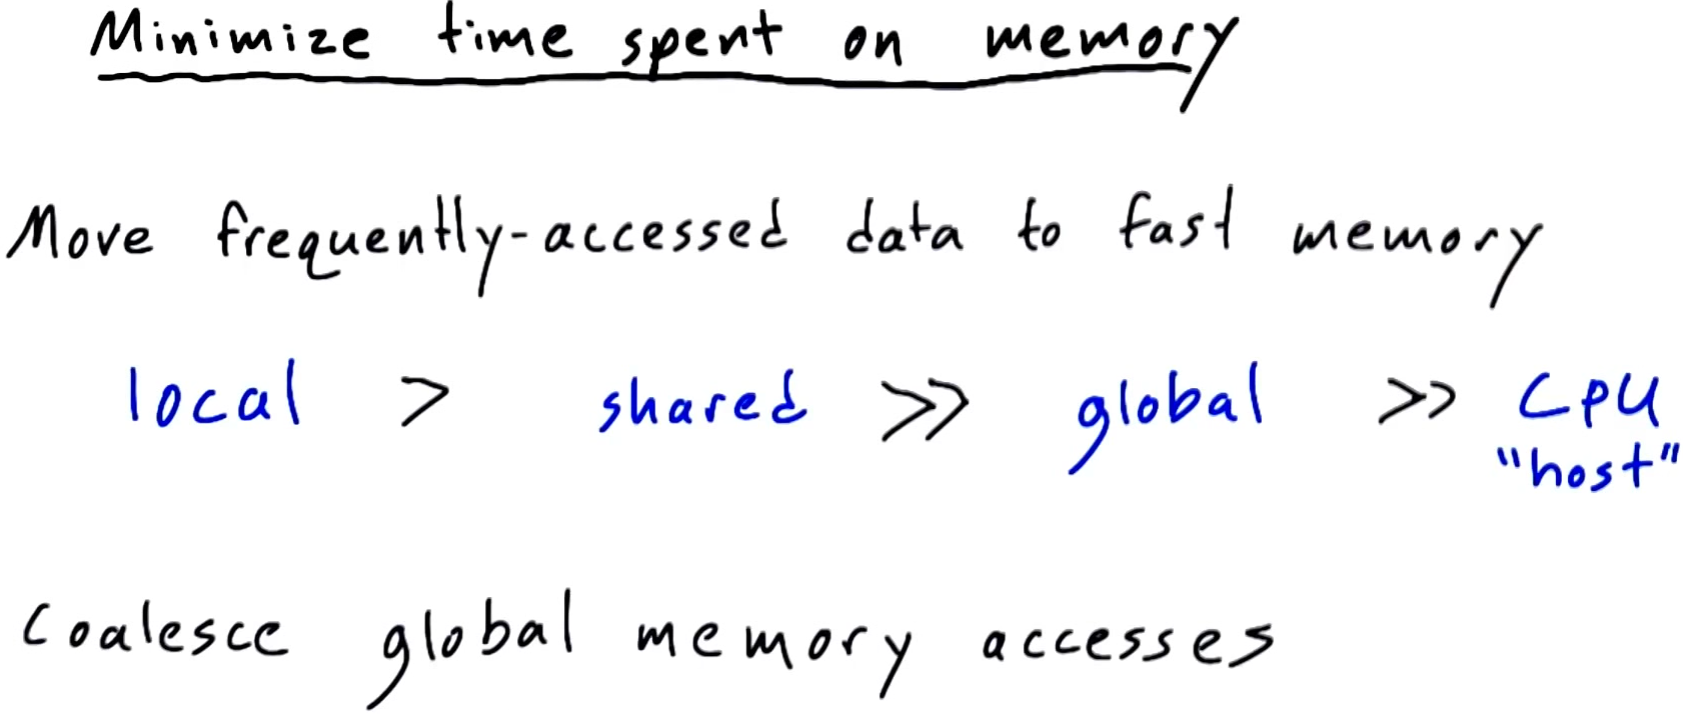 Minimize time spent on memory
Move frequently-accessed data to fast memory
local > shared >> global >> CPU
"host"
Coalesce global memory accesses